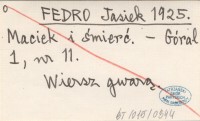 FEDRO Jasiek 1925.
Maciek i śmierć. – Góral
1, nr 11.
Wiersz gwarą.